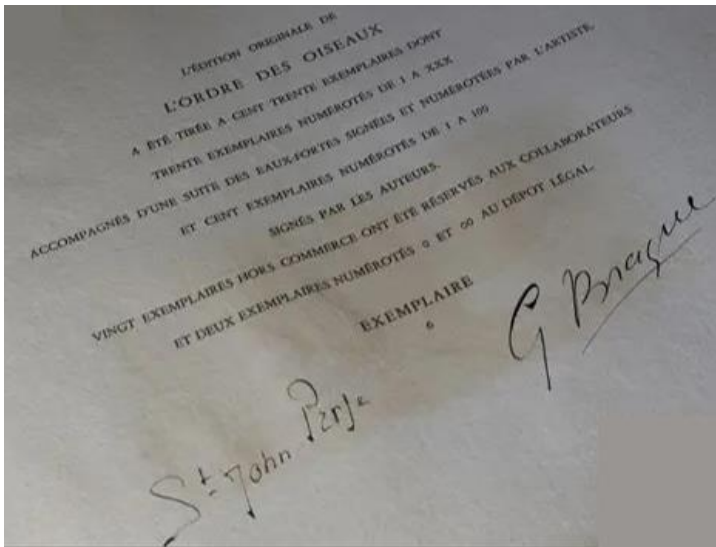 L'ÉDITION ORIGINALE DE
L'ORDRE DES OISEAUX
A ÉTÉ TIRÉE A CENT TRENTE EXEMPLAIRES DONT
TRENTE EXEMPLAIRES NUMÉROTÉS DE I A XXX
ACCOMPAGNÉS D'UNE SUITE DES EAUX-FORTES SIGNÉES ET NUMÉROTÉES PAR L'ARTISTE,
ET CENT EXEMPLAIRES NUMÉROTÉS DE 1 A 100
SIGNÉS PAR LES AUTEURS.
VINGT EXEMPLAIRES HORS COMMERCE ONT ÉTÉ RÉSERVÉS AUX COLLABORATEURS
ET DEUX EXEMPLAIRES NUMÉROTÉS 0 ET 00 AU DÉPOT LÉGAL.
EXEMPLAIRE
6
G Braque
St John Perse